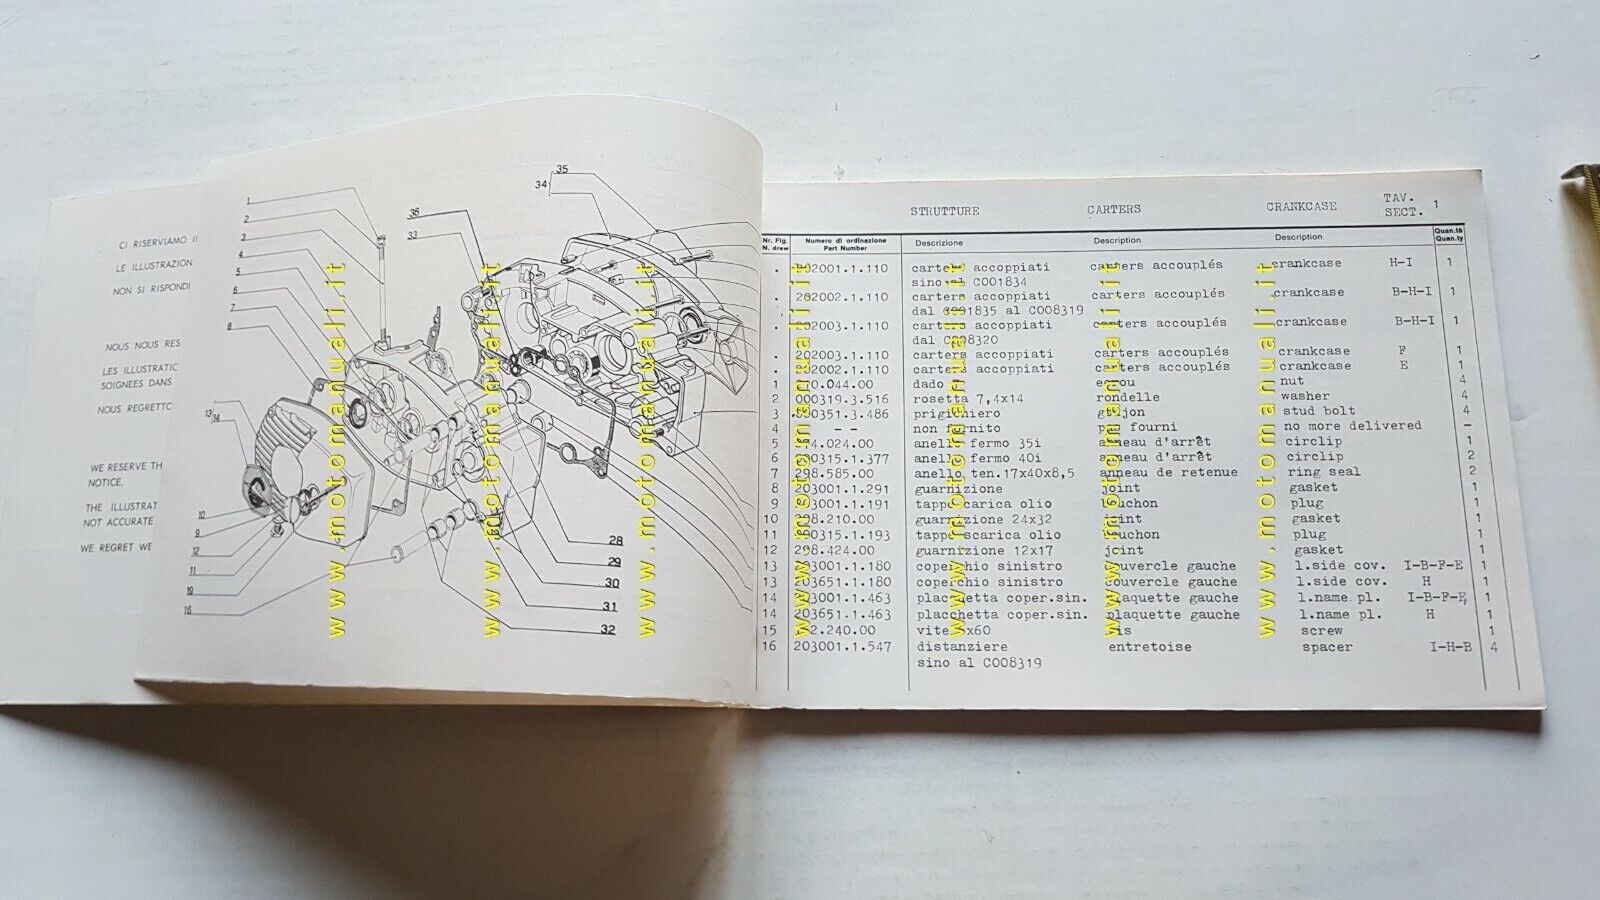 CI RISERVIAMO II
LE ILLUSTRAZION
NON SI RISPONDI
NOUS NOUS RES
LES ILLUSTRATIC
SOIGNEES DANS
NOUS REGRETTC
WE RESERVE TH
NOTICE.
THE ILLUSTRAT
NOT ACCURATE
WE REGRET WE
1
2
3
4
5
6
7
8
13
14
10
9
12
11
10
16
36
33
35
34
28
29
30
31
32
www.motomanuali.it
www.motomanuali.it
www.motomanuali.it
www.motomanuali.it
www.motomanuali.it
www.motomanuali.it
www.motomanuali.it
STRUTTURE CARTERS CRANKCASE TAV. SECT. 1
Nr. Fig. N. draw Numero di ordinazione Part Number Descrizione Description Description Quan.tà Quan.ty
. 202001.1.110 carters accoppiati carters accouplés crankcase H-I 1
sino al C001834
. 202002.1.110 carters accoppiati carters accouplés crankcase B-H-I 1
dal C001835 al C008319
. 202003.1.110 carters accoppiati carters accouplés crankcase B-H-I 1
dal C008320
. 202003.1.110 carters accoppiati carters accouplés crankcase F 1
. 202002.1.110 carters accoppiati carters accouplés crankcase E 1
1 dado écrou nut 4
2 000319.3.516 rosetta 7,4x14 rondelle washer 4
3 prigioniero goujon stud bolt 4
4 - - non fornito pas fourni no more delivered -
5 anello fermo 35i anneau d'arrêt circlip 1
6 000315.1.377 anello fermo 40i anneau d'arrêt circlip 2
7 298.585.00 anello ten.17x40x8,5 anneau de retenue ring seal 2
8 203001.1.291 guarnizione joint gasket 1
9 203001.1.191 tappo carica olio bouchon plug 1
10 298.210.00 guarnizione 24x32 joint gasket 1
11 000315.1.193 tappo scarica olio bouchon plug 1
12 298.424.00 guarnizione 12x17 joint gasket 1
13 203001.1.180 coperchio sinistro couvercle gauche l.side cov. I-B-F-E 1
13 203651.1.180 coperchio sinistro couvercle gauche l.side cov. H 1
14 203001.1.463 placchetta coper.sin. plaquette gauche l.name pl. I-B-F-E 1
14 203651.1.463 placchetta coper.sin. plaquette gauche l.name pl. H 1
15 vite vis screw 1
16 203001.1.547 distanziere entretoise spacer I-H-B 4
sino al C008319